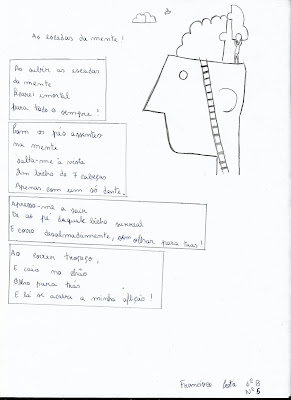 As escadas da mente!
Ao subir as escadas
da mente
Ficarei imortal
para todo o sempre!
Com os pés assentes
na mente
Salta-me à vista
Um bicho de 7 cabeças
Apenas com um só dente.
Apresso-me a sair
De ao pé daquele bicho surreal
E corro desalmadamente, sem olhar para trás!
Ao correr tropeço,
E caio no chão
Olho para trás
E lá se acaba a minha aflição!
Francisco Costa 6º B
Nº 5